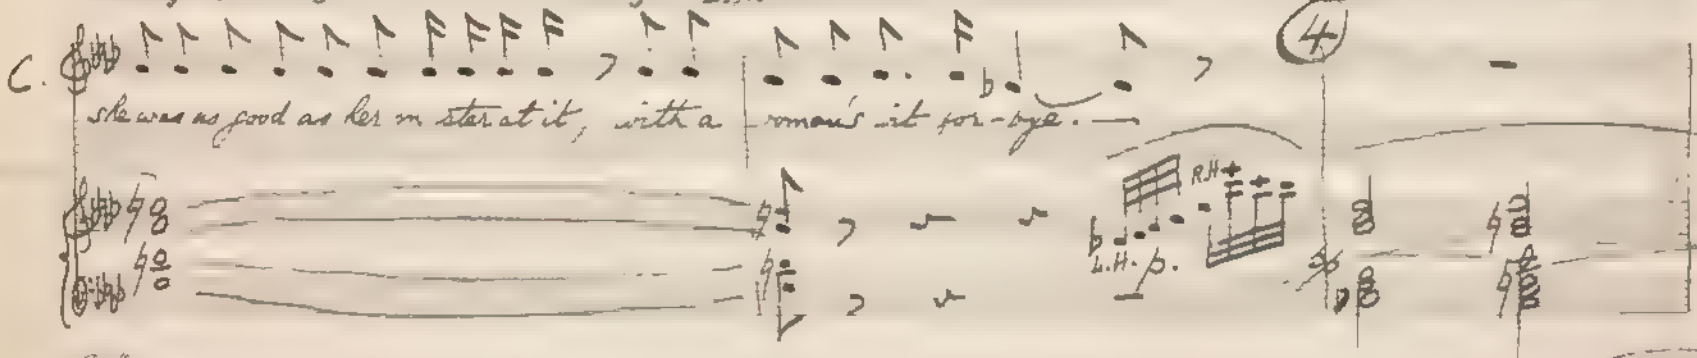 4
C.
she was as good as her m ster at it, with a woman's wit for-bye.
R.H.
L.H. p.